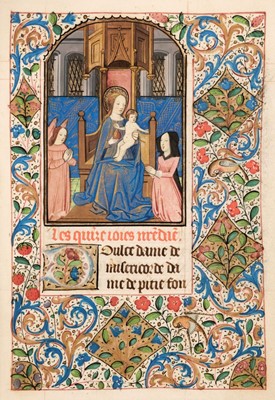 Les quinze ioies nr̃e dãe.
Doulce dame de
misericorde de da
me de pitie fon